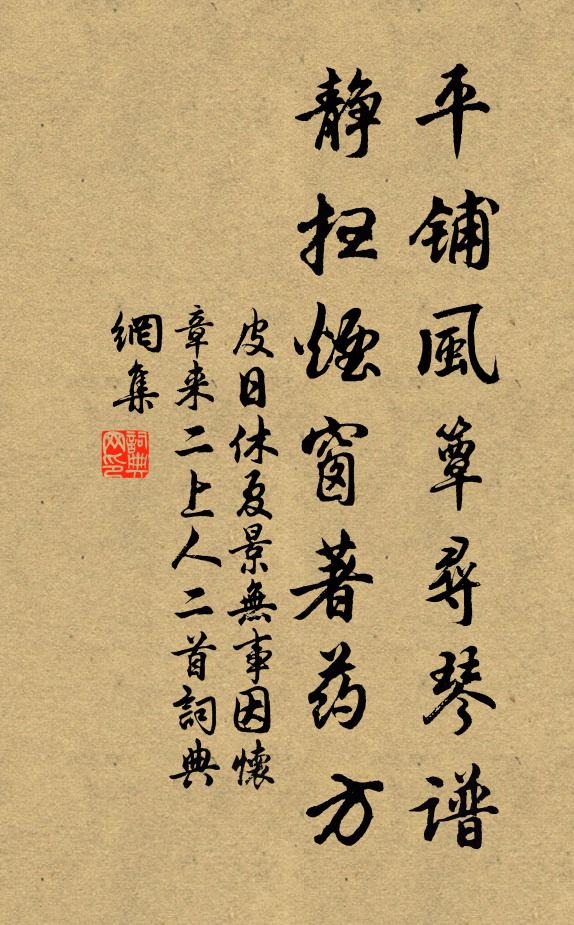 平铺風簟尋琴谱
静扫煙窗著药方
皮日休夏景無事因懷
章来二上人二首詞典
網集
詞典網印